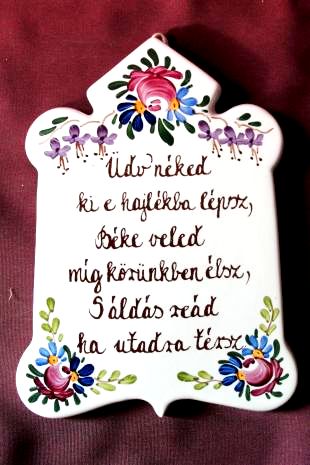 Üdv néked
ki e hajlékba lépsz,
Béke veled
míg körünkben élsz,
S áldás reád
ha utadra térsz.